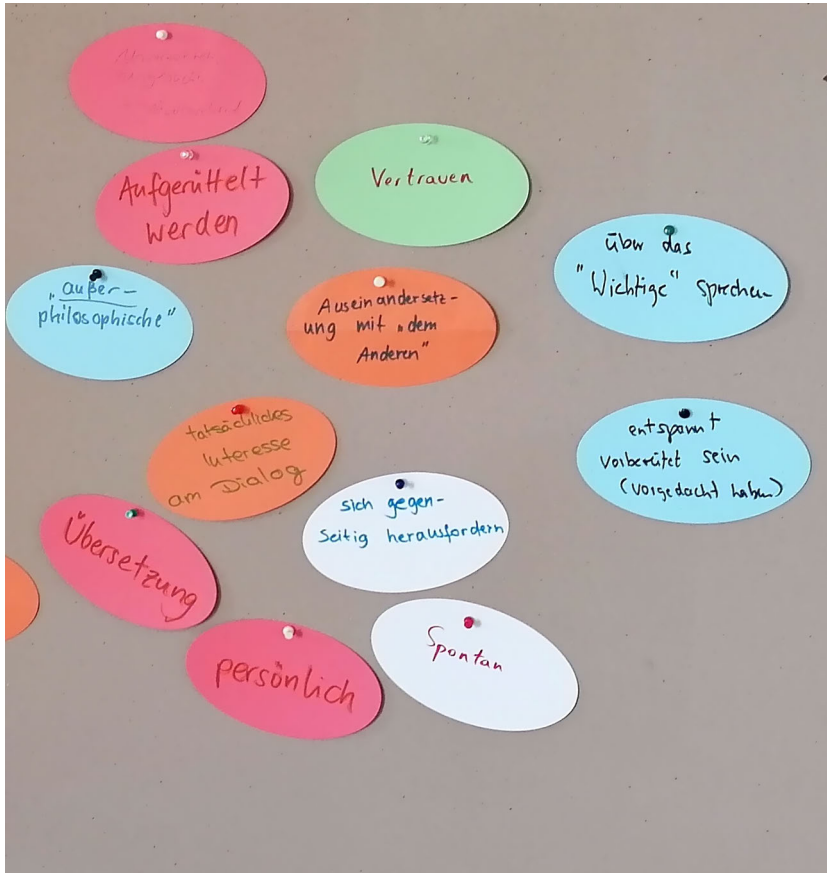 Aufgerüttelt
werden
Vertrauen
über das
"Wichtige" sprechen
„außer-
philosophische"
Auseinandersetz-
ung mit „dem
Anderen"
tatsächliches
Interesse
am Dialog
entspannt
vorbereitet sein
(vorgedacht haben)
sich gegen-
seitig herausfordern
Übersetzung
persönlich
Spontan